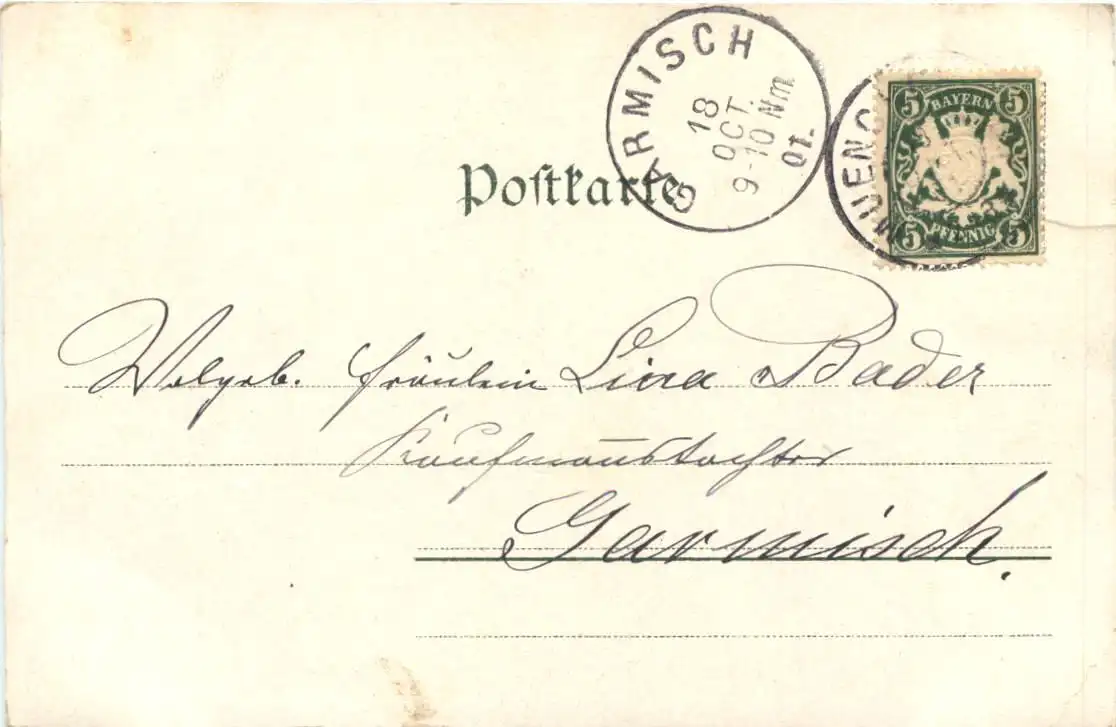 GARMISCH
18
OCT.
9-10 Nm.
01.
MUENC
5 BAYERN 5
5 PFENNIG 5
Postkarte
Wolgeb. Fräulein Lina Bader
Kaufmannstochter
Garmisch.